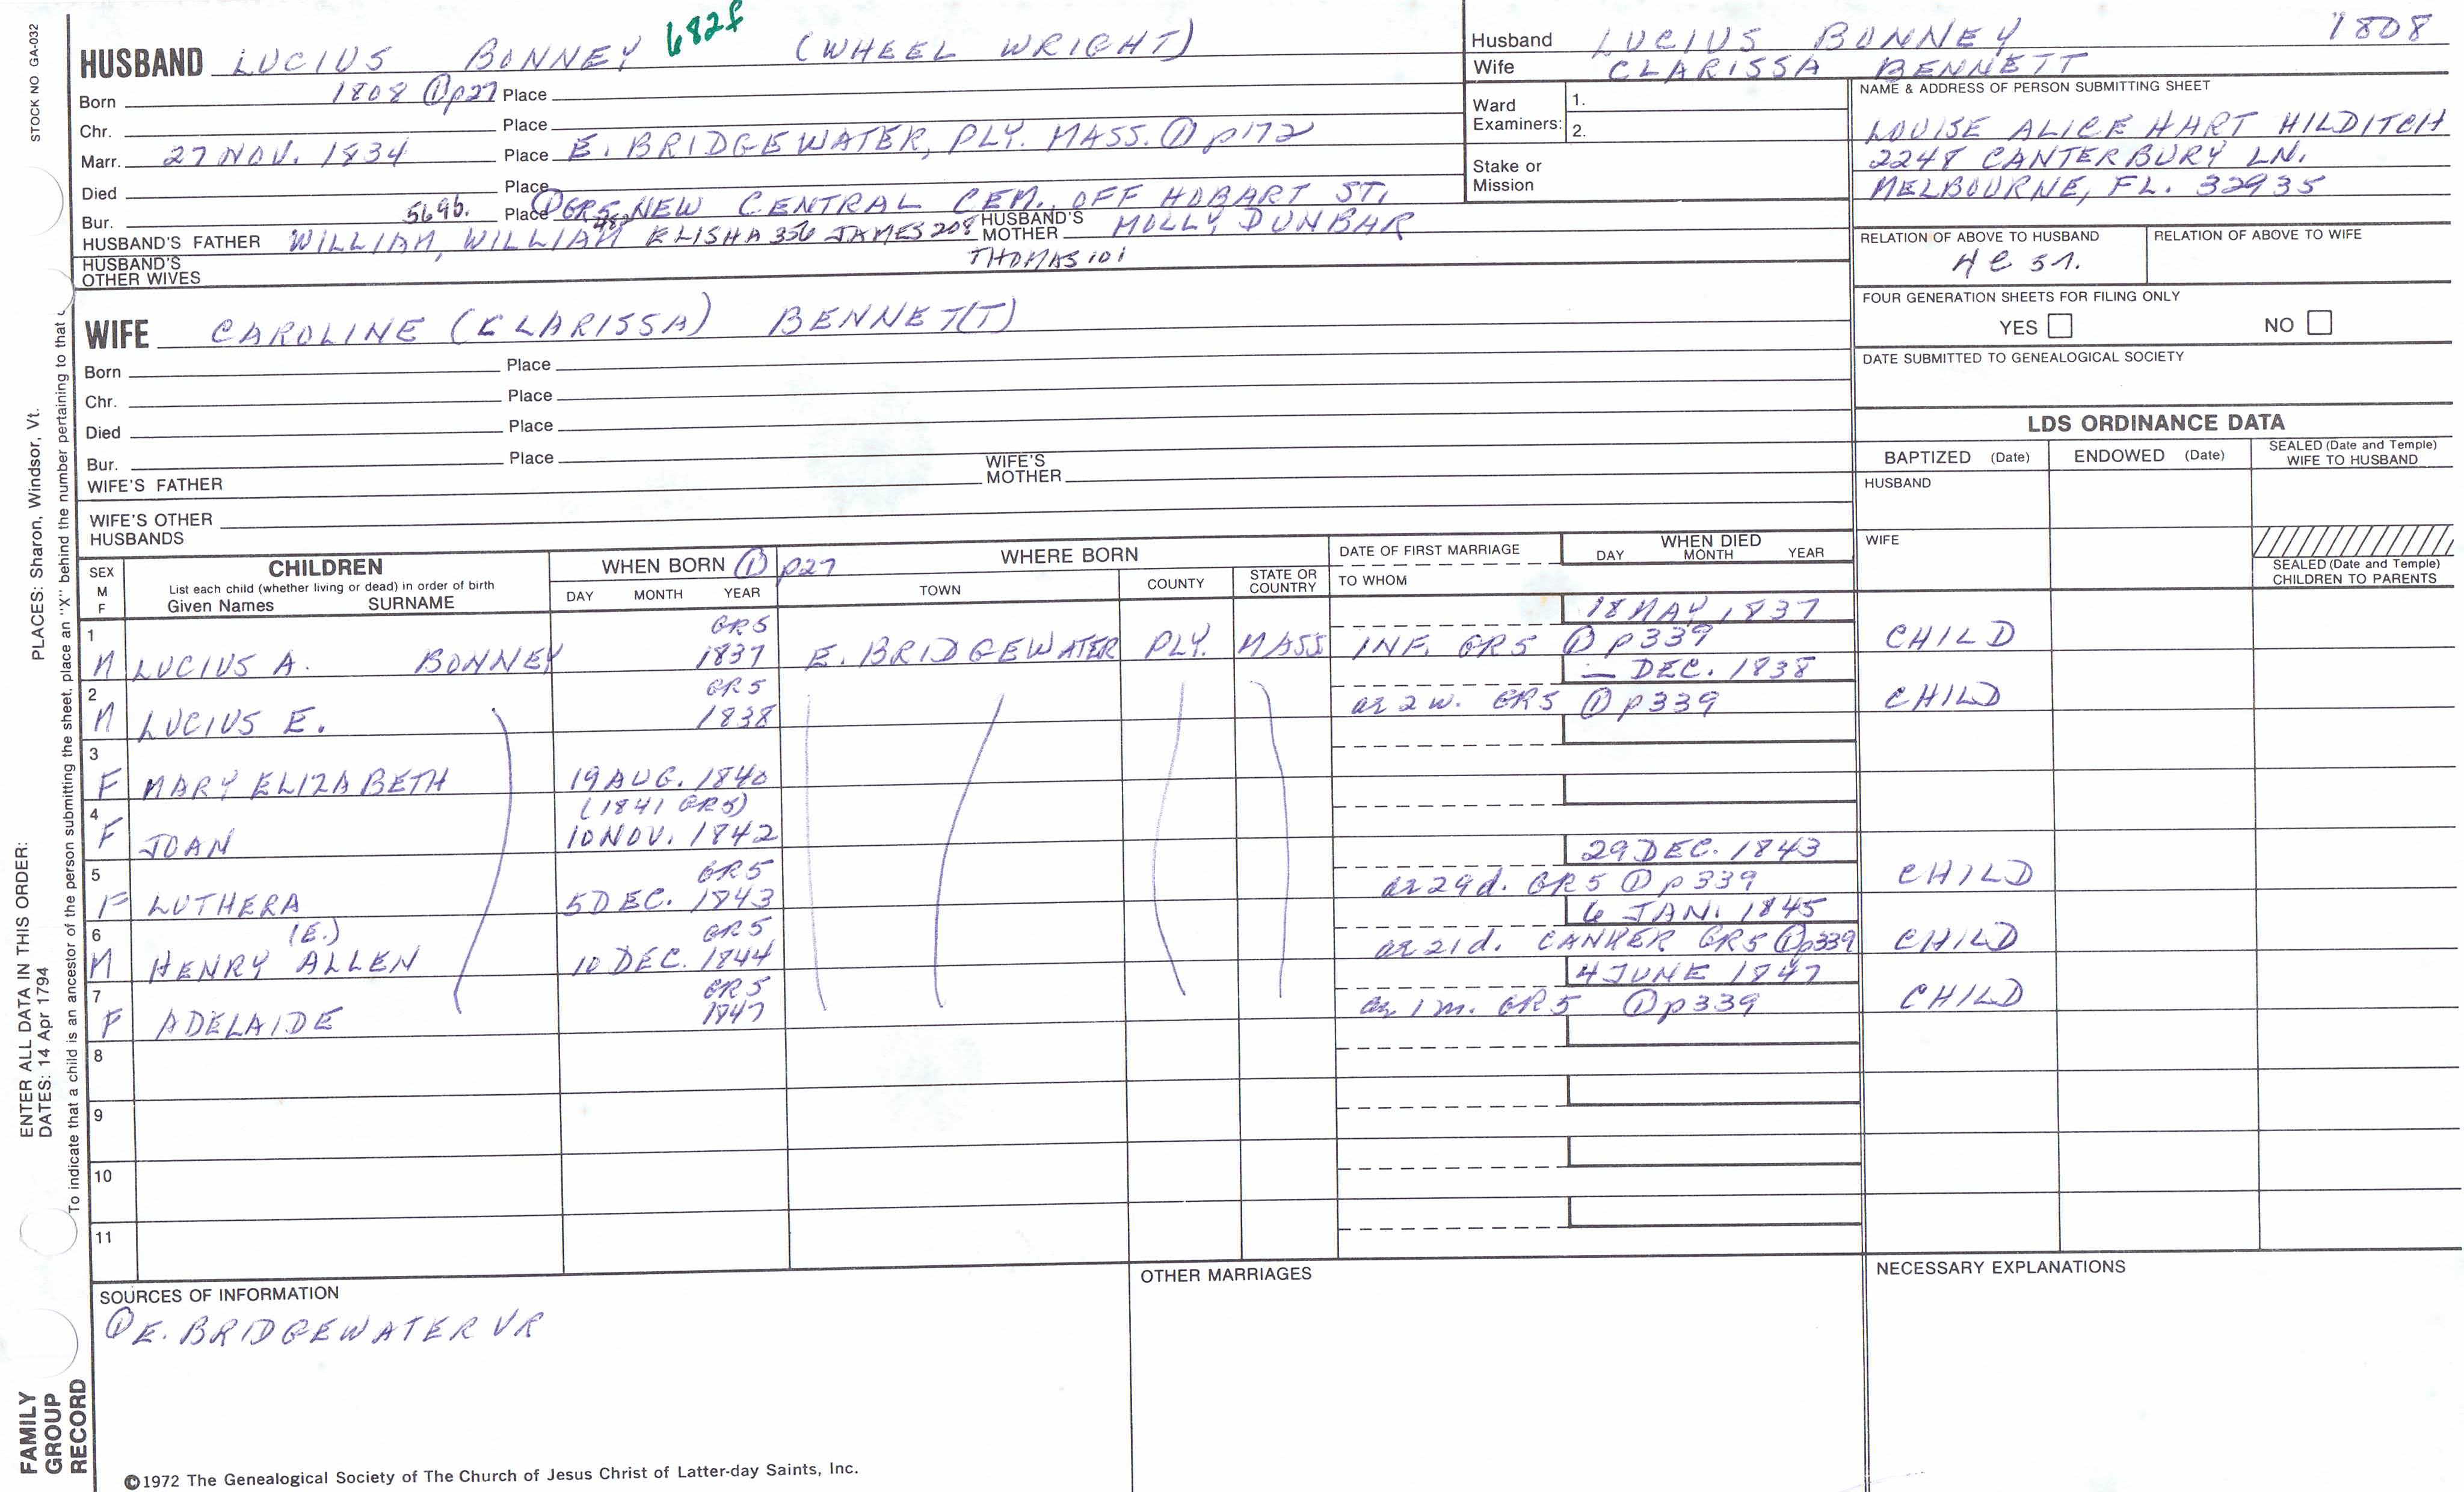 STOCK NO GA-032
682f
HUSBAND LUCIUS BONNEY (WHEEL WRIGHT)
Born 1808 ① p27 Place
Chr. Place
Marr. 27 NOV. 1834 Place E. BRIDGEWATER, PLY. MASS. ① p172
Died Place
Bur. Place ① GR5 NEW CENTRAL CEM. OFF HOBART ST.
5696.
HUSBAND'S FATHER WILLIAM, WILLIAM 482 ELISHA 356 JAMES 208 HUSBAND'S MOTHER MOLLY DUNBAR
THOMAS 101
HUSBAND'S OTHER WIVES
Husband LUCIUS BONNEY 1808
Wife CLARISSA BENNETT
Ward Examiners: 1.
2.
Stake or Mission
NAME & ADDRESS OF PERSON SUBMITTING SHEET
LOUISE ALICE HART HILDITCH
2248 CANTERBURY LN.
MELBOURNE, FL. 32935
RELATION OF ABOVE TO HUSBAND RELATION OF ABOVE TO WIFE
FOUR GENERATION SHEETS FOR FILING ONLY
YES NO
DATE SUBMITTED TO GENEALOGICAL SOCIETY
WIFE CAROLINE (CLARISSA) BENNET(T)
Born Place
Chr. Place
Died Place
Bur. Place
WIFE'S FATHER WIFE'S MOTHER
WIFE'S OTHER HUSBANDS
LDS ORDINANCE DATA
BAPTIZED (Date) ENDOWED (Date) SEALED (Date and Temple) WIFE TO HUSBAND
HUSBAND
WIFE
SEALED (Date and Temple) CHILDREN TO PARENTS
SEX M F
CHILDREN
List each child (whether living or dead) in order of birth
Given Names SURNAME
WHEN BORN ① p27
DAY MONTH YEAR
WHERE BORN
TOWN COUNTY STATE OR COUNTRY
DATE OF FIRST MARRIAGE
TO WHOM
WHEN DIED
DAY MONTH YEAR
1 GR5 18 MAY 1837
M LUCIUS A. BONNEY 1837 E. BRIDGEWATER PLY. MASS INF. GR5 ① p339 CHILD
2 GR5 — DEC. 1838
M LUCIUS E. 1838 ae 2 w. GR5 ① p339 CHILD
3
F MARY ELIZABETH 19 AUG. 1840
4 (1841 GR5)
F JOAN 10 NOV. 1842
5 GR5 29 DEC. 1843
F LUTHERA 5 DEC. 1843 ae 29 d. GR5 ① p339 CHILD
6 (E.) GR5 6 JAN. 1845
M HENRY ALLEN 10 DEC. 1844 ae 21 d. CANKER GR5 ① p339 CHILD
7 GR5 4 JUNE 1847
F ADELAIDE 1847 ae 1 m. GR5 ① p339 CHILD
8
9
10
11
SOURCES OF INFORMATION
① E. BRIDGEWATER VR
OTHER MARRIAGES
NECESSARY EXPLANATIONS
©1972 The Genealogical Society of The Church of Jesus Christ of Latter-day Saints, Inc.
FAMILY GROUP RECORD
ENTER ALL DATA IN THIS ORDER:
DATES: 14 Apr 1794
PLACES: Sharon, Windsor, Vt.
To indicate that a child is an ancestor of the person submitting the sheet, place an "X" behind the number pertaining to that